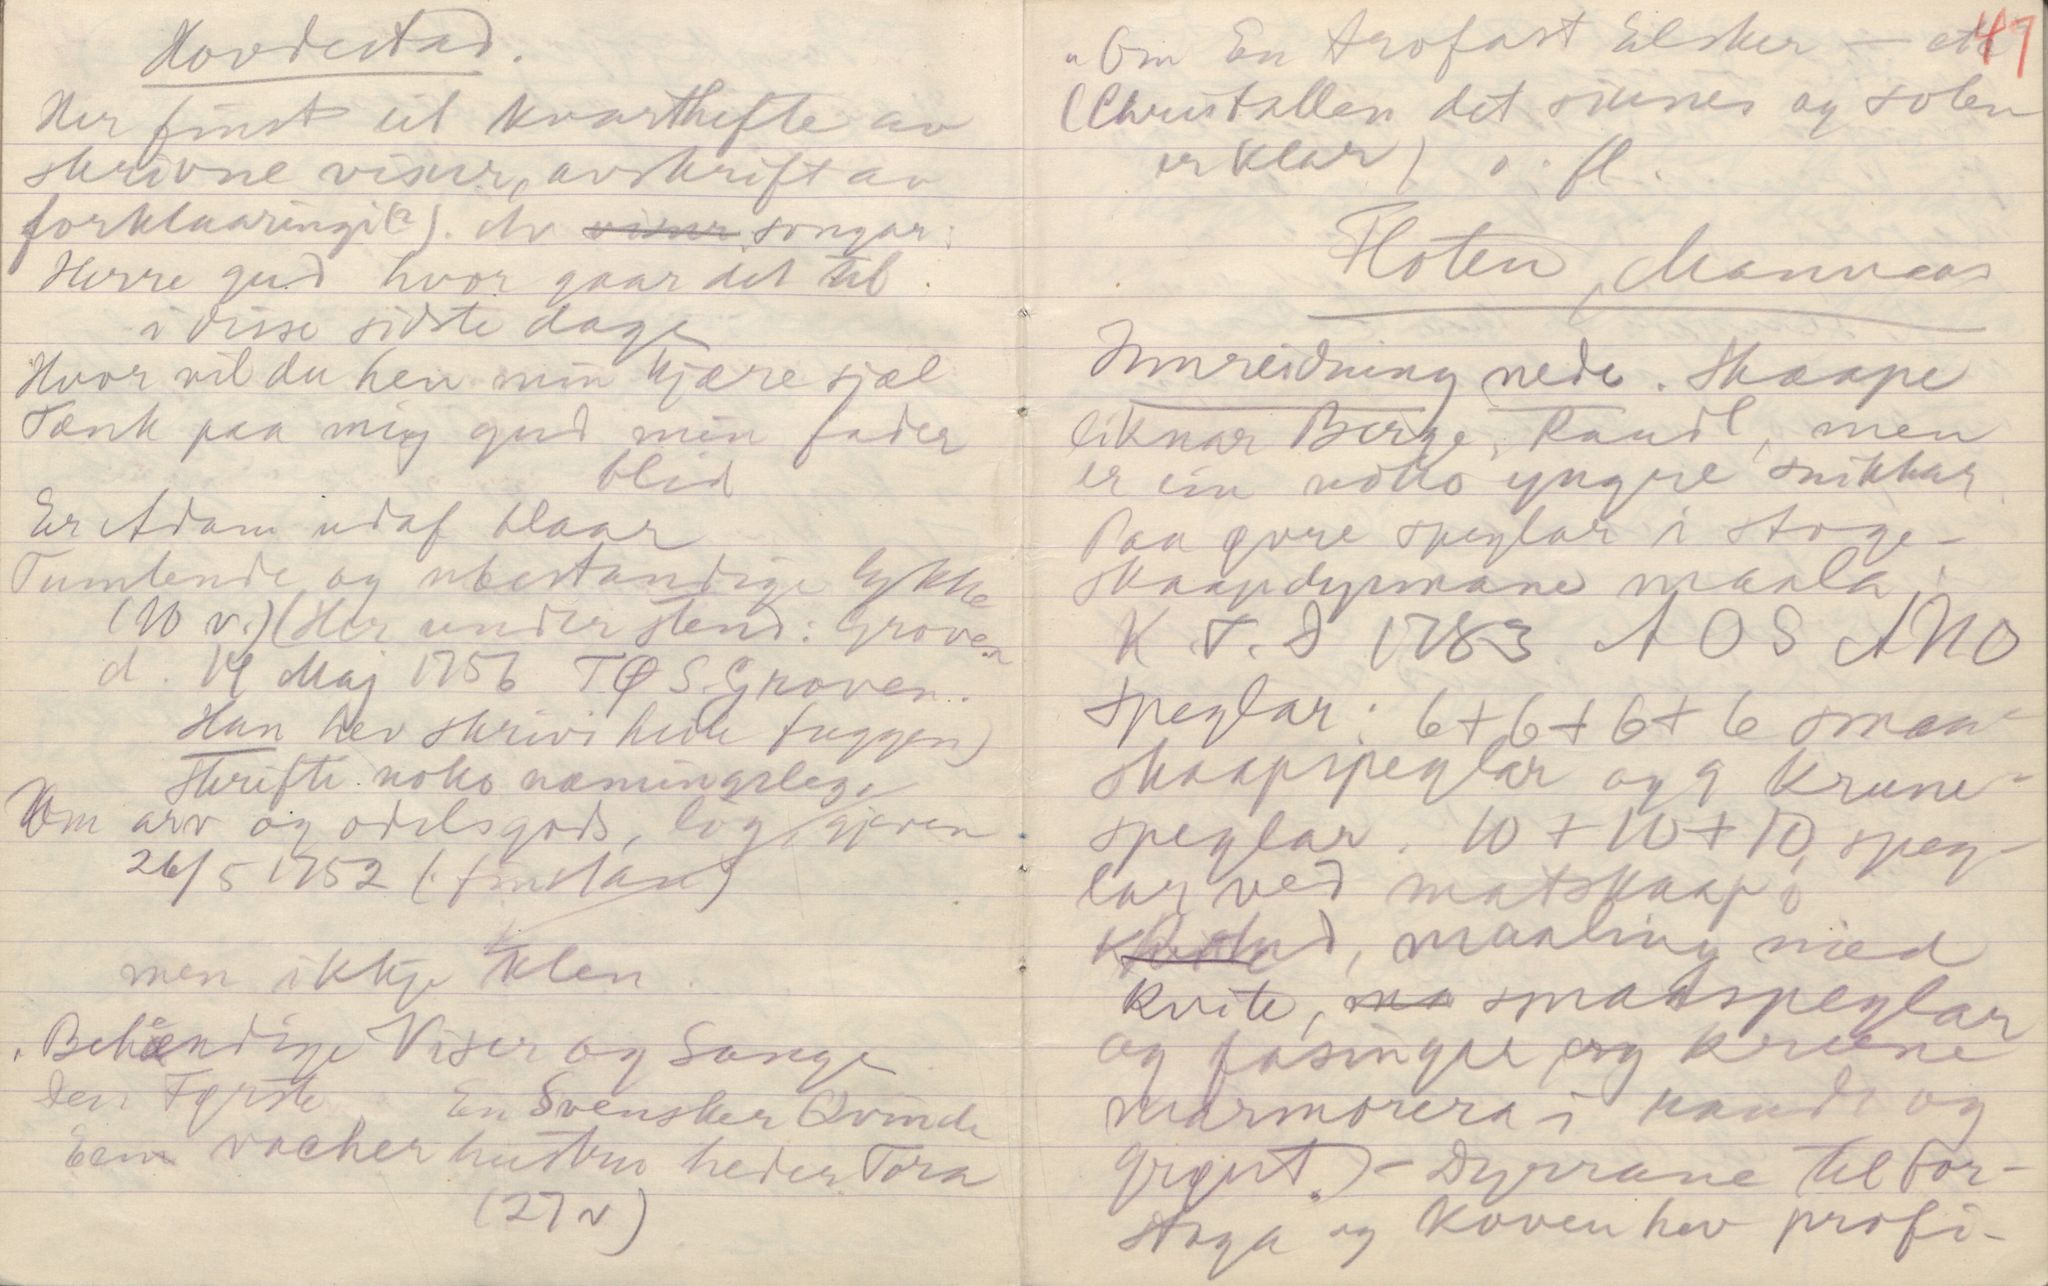 Hovdestad.
Her finst eit kvarthefte av
skrivne viser, avskrift av
forklaaringi(?). Av viser songar:
Herre gud hvor gaar det til
i disse sidste dage
Hvor vil du hen min kjære sjæl
Tænk paa mig gud min fader
blid
Er Adam udaf blaar
Tumlende og ubestandige lykke
(10 v.) (Her under stend: Groven
d. 19 Maj 1756 TØS. Groven.
Han hev skrivi heile tuggen)
Skrifti noko næmingslege
Om arv og odelsgods, lög gjeven
26/5 1752
men ikkje klen.
"Behændige Viser og Sange
den Første En Svensker Qvinde
Een vacker hustru heder Tora
(27 v)
47
"Om En trofast Elsker —
(Christallen det skines og solen
er klar) o. fl.
Floten, Mannaas
Innreidning nede. Skaape
liknar Berge, Raudl, men
er ein noko yngre snikkar.
Paa øvre speglar i stoge-
skaapdyrnane maala:
K. T. S 1783 A O S ANO
Speglar: 6+6+6+6 smaa-
skaapspeglar og 9 krune-
speglar. 10+10+10 speg-
lar ved matskaap i
maaling med
kvite, smaaspeglar
og fasingar og krune
marmorera i raudt og
grønt. — Dyrrane til For-
stoga og Koven hev profi-